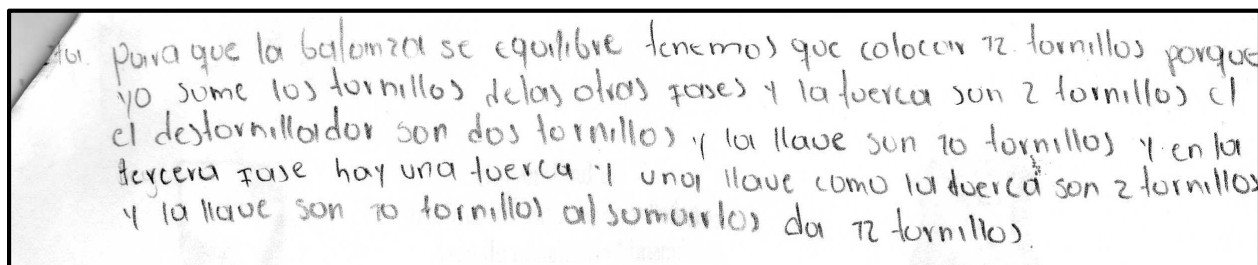 para que la balanza se equilibre tenemos que colocar 12 tornillos porque
yo sume los tornillos delas otras fases y la tuerca son 2 tornillos el
el destornillador son dos tornillos y la llave son 10 tornillos y en la
tercera fase hay una tuerca y una llave como la tuerca son 2 tornillos
y la llave son 10 tornillos al sumarlos da 12 tornillos.